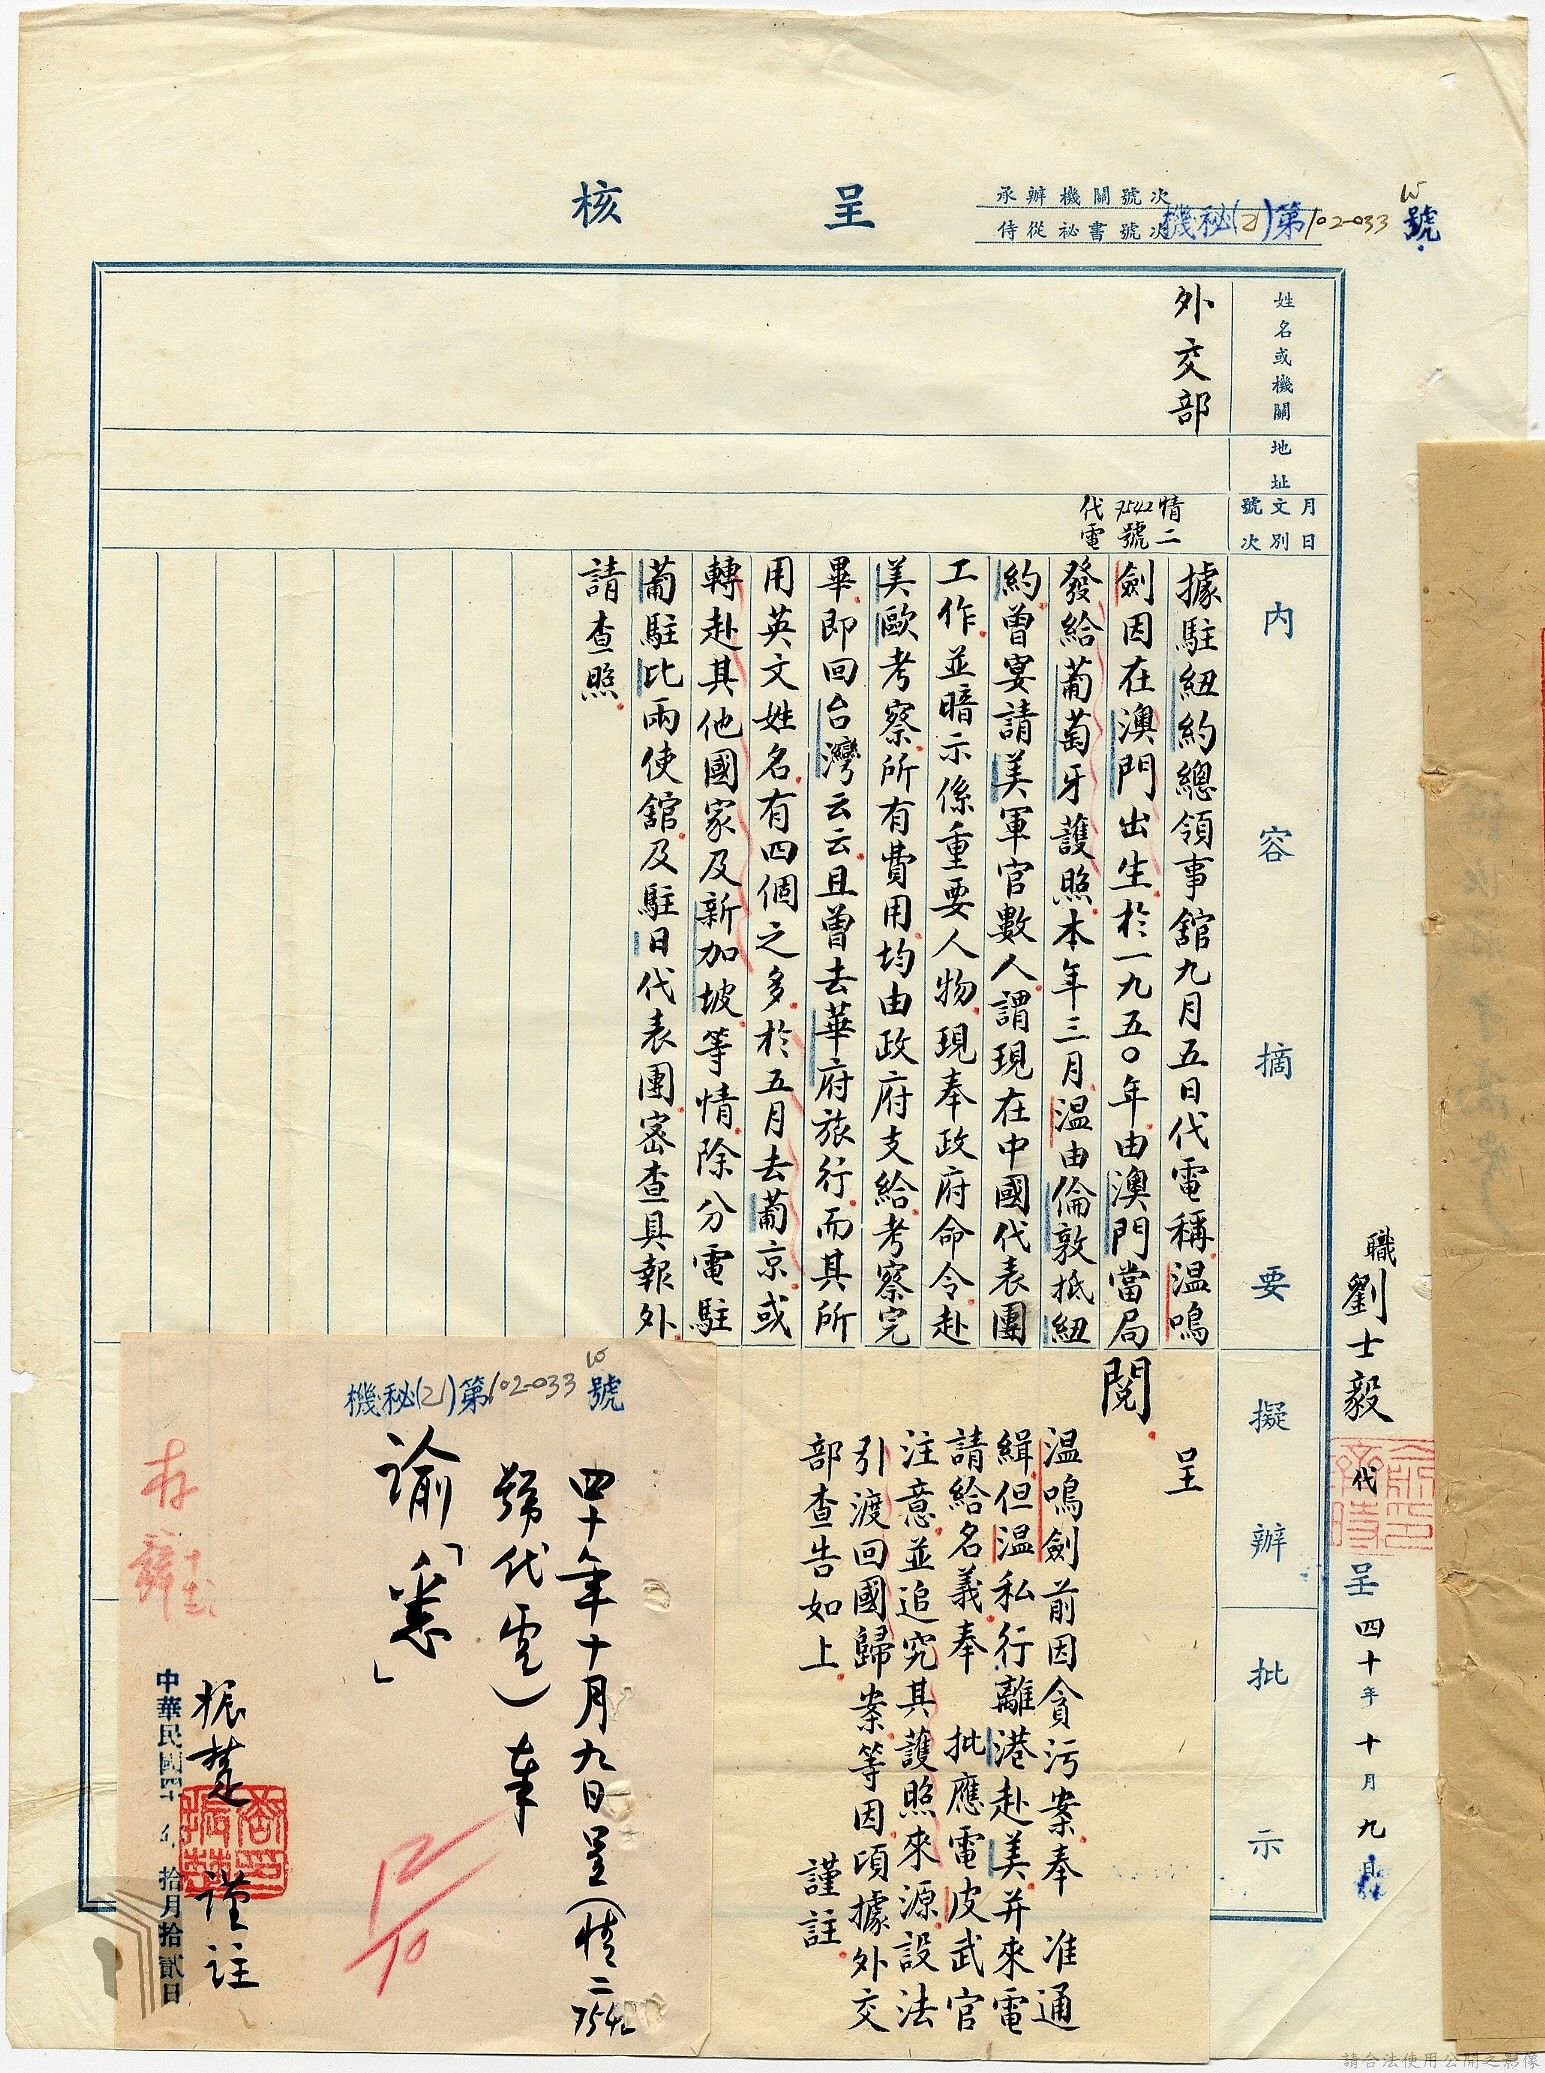 呈核
承辦機關號次
侍從祕書號次
機秘(乙)第102-033號
姓名或機關
地址
月日
文別
號次
內容摘要
擬辦
批示
外交部
情二
7542號
代電
據駐紐約總領事館九月五日代電稱溫鳴
劍因在澳門出生於一九五〇年由澳門當局
發給葡萄牙護照本年三月溫由倫敦抵紐
約曾宴請美軍官數人謂現在中國代表團
工作並暗示係重要人物現奉政府命令赴
美歐考察所有費用均由政府支給考察完
畢即回台灣云云且曾去華府旅行而其所
用英文姓名有四個之多於五月去葡京或
轉赴其他國家及新加坡等情除分電駐
葡駐比兩使舘及駐日代表團密查具報外
請查照
呈
閱
溫鳴劍前因貪污案奉 准通
緝但溫私行離港赴美并來電
請給名義奉 批應電皮武官
注意並追究其護照來源設法
引渡回國歸案等因頃據外交
部查告如上 謹註
職劉士毅
代
呈四十年十月九日
機秘(乙)第102-033號
四十年十月九日呈(情二7542
號代電)奉
諭「悉」
振楚謹註
中華民國四十年拾月拾貳日
存
12/10
請合法使用公開之影像